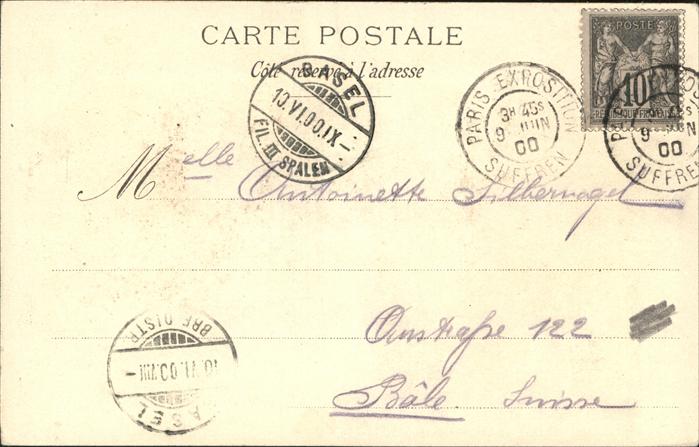 CARTE POSTALE
Côté réservé à l'adresse
POSTE
10
REPUBLIQUE FRANCAISE
PARIS EXPOSITION
3H 45S
9 JUIN
00
SUFFREN
9 JUIN
00
SUFFREN
BASEL
10.VI.00.IX-
FIL. III SPALEN
Melle Antoinette Silbernagel
122
Bâle. Suisse
BRF. DISTR.
10.VI.00.VIII-
BASEL